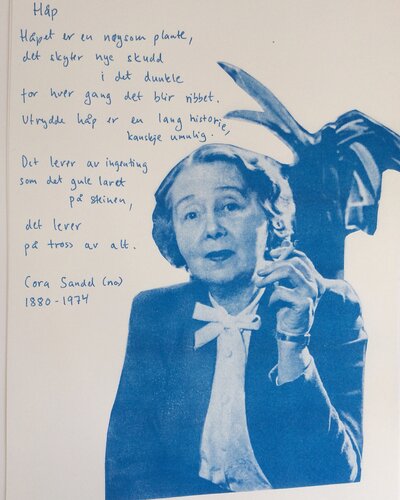 Håp
Håpet er en nøysom plante,
det skyter nye skudd
i det dunkle
for hver gang det blir ribbet.
Utrydde håp er en lang historie,
kanskje umulig.
Det lever av ingenting
som det gule laret
på steinen,
det lever
på tross av alt.
Cora Sandel (no)
1880-1974